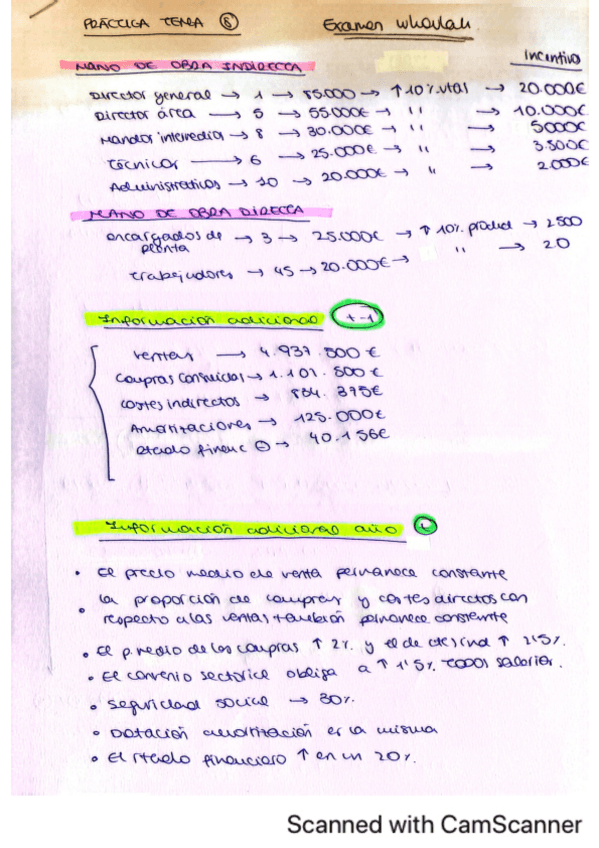 PRÁCTICA TEMA 8 Examen Whaulah
Incentivo
MANO DE OBRA INDIRECTA
Director general → 1 → 85.000 → ↑ 10% vtas → 20.000€
Director área → 5 → 55.000€ → " → 10.000€
Mandos intermedios → 8 → 30.000€ → " → 5000€
Técnicos → 6 → 25.000€ → " → 3.500€
Administrativos → 10 → 20.000€ → " → 2000€
MANO DE OBRA DIRECTA
encargados de planta → 3 → 25.000€ → ↑ 10% product → 2500
trabajadores → 45 → 20.000€ → " → 20
Información adicional t-1
ventas → 4.937.500€
Compras consumidas → 1.101.500€
costes indirectos → 834.375€
Amortizaciones → 125.000€
rtado financ → 40.156€
Información adicional año t
• El precio medio de venta permanece constante
• La proporción de compras y costes directos con
respecto a las ventas también permanece constante
• El p. medio de las compras ↑ 2% y el de ctes ind ↑ 2'5%.
• El convenio sectorial obliga a ↑ 1'5% todos salarios.
• Seguridad social → 30%
• Dotación amortización es la misma
• El rtado financiero ↑ en un 20%.
Scanned with CamScanner